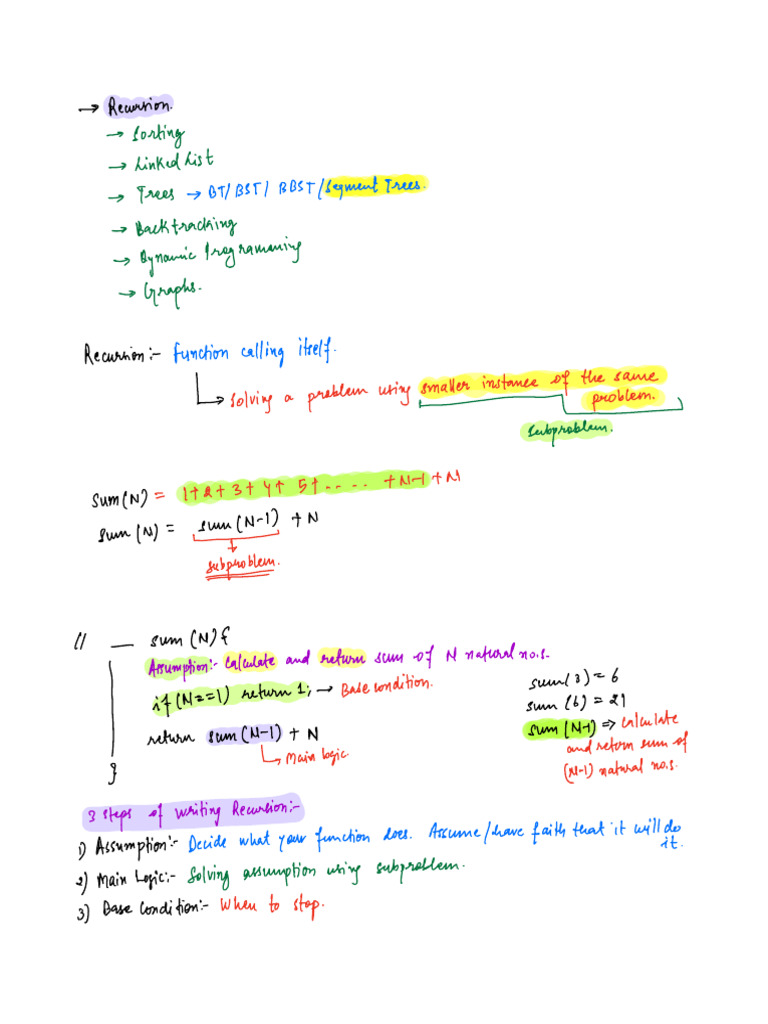 → Recursion.
→ Sorting
→ Linked List
→ Trees → BT/BST/ BBST/Segment Trees.
→ Backtracking
→ Dynamic Programming
→ Graphs.
Recursion:- function calling itself.
→ Solving a problem using smaller instance of the same
problem.
Subproblem.
Sum(N) = 1+2+3+4+ 5+..... +N-1+N
Sum(N) = sum(N-1) + N
subproblem.
// __ sum(N){
Assumption:- Calculate and return sum of N natural no.s.
if(N==1) return 1; → Base condition.
return sum(N-1) + N
Main logic.
}
sum(3)=6
sum(6)=21
sum(N-1) => Calculate
and return sum of
(N-1) natural no.s.
3 Steps of writing Recursion:-
1) Assumption:- Decide what your function does. Assume/have faith that it will do
it.
2) Main Logic:- Solving assumption using subproblem.
3) Base Condition:- When to stop.